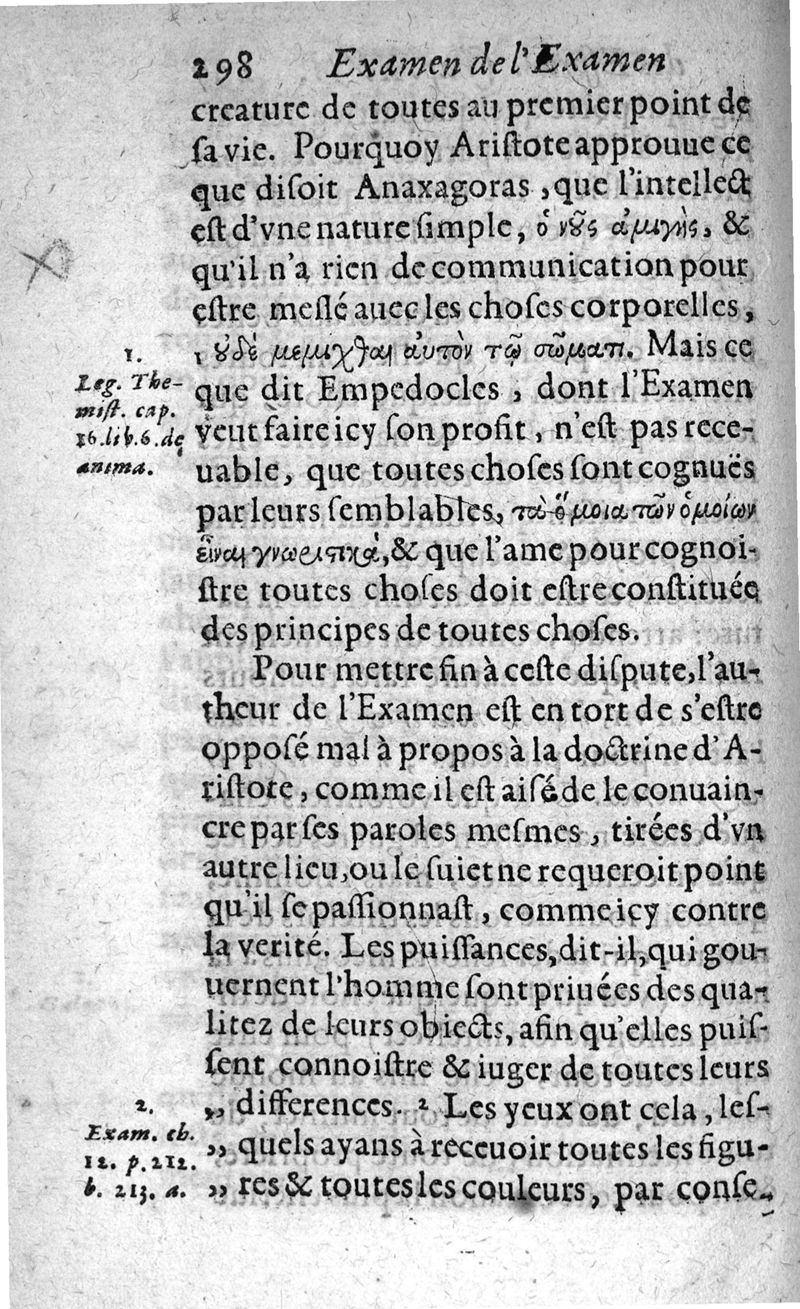 298 Examen de l'Examen
creature de toutes au premier point de
ſa vie. Pourquoy Ariſtote approuue ce
que diſoit Anaxagoras, que l'intellect
eſt d'vne nature ſimple, ὁ νοῦς ἀμιγὴς, &
qu'il n'a rien de communication pour
eſtre meſlé auec les choſes corporelles,
1.
ι οὐδὲ μεμιχθαι αὐτὸν τῷ σώματι. Mais ce
Leg. The-
miſt. cap.
16. lib. 6. de
anima.
que dit Empedocles, dont l'Examen
veut faire icy ſon profit, n'eſt pas rece-
uable, que toutes choſes ſont cognuës
par leurs ſemblables, τὰ ὅμοια τῶν ὁμοίων
εἶναι γνωριστικὰ, & que l'ame pour cognoi-
ſtre toutes choſes doit eſtre conſtituée
des principes de toutes choſes.
Pour mettre fin à ceſte diſpute, l'au-
theur de l'Examen eſt en tort de s'eſtre
oppoſé mal à propos à la doctrine d'A-
riſtote, comme il eſt aiſé de le conuain-
cre par ſes paroles meſmes, tirées d'vn
autre lieu, ou le ſuiet ne requeroit point
qu'il ſe paſſionnaſt, comme icy contre
la verité. Les puiſſances, dit-il, qui gou-
uernent l'homme ſont priuées des qua-
litez de leurs obiects, afin qu'elles puiſ-
ſent connoiſtre & iuger de toutes leurs
2.
„ differences. 2 Les yeux ont cela, leſ-
Exam. ch.
12. p. 212.
b. 213. a.
„ quels ayans à receuoir toutes les figu-
„ res & toutes les couleurs, par conſe-